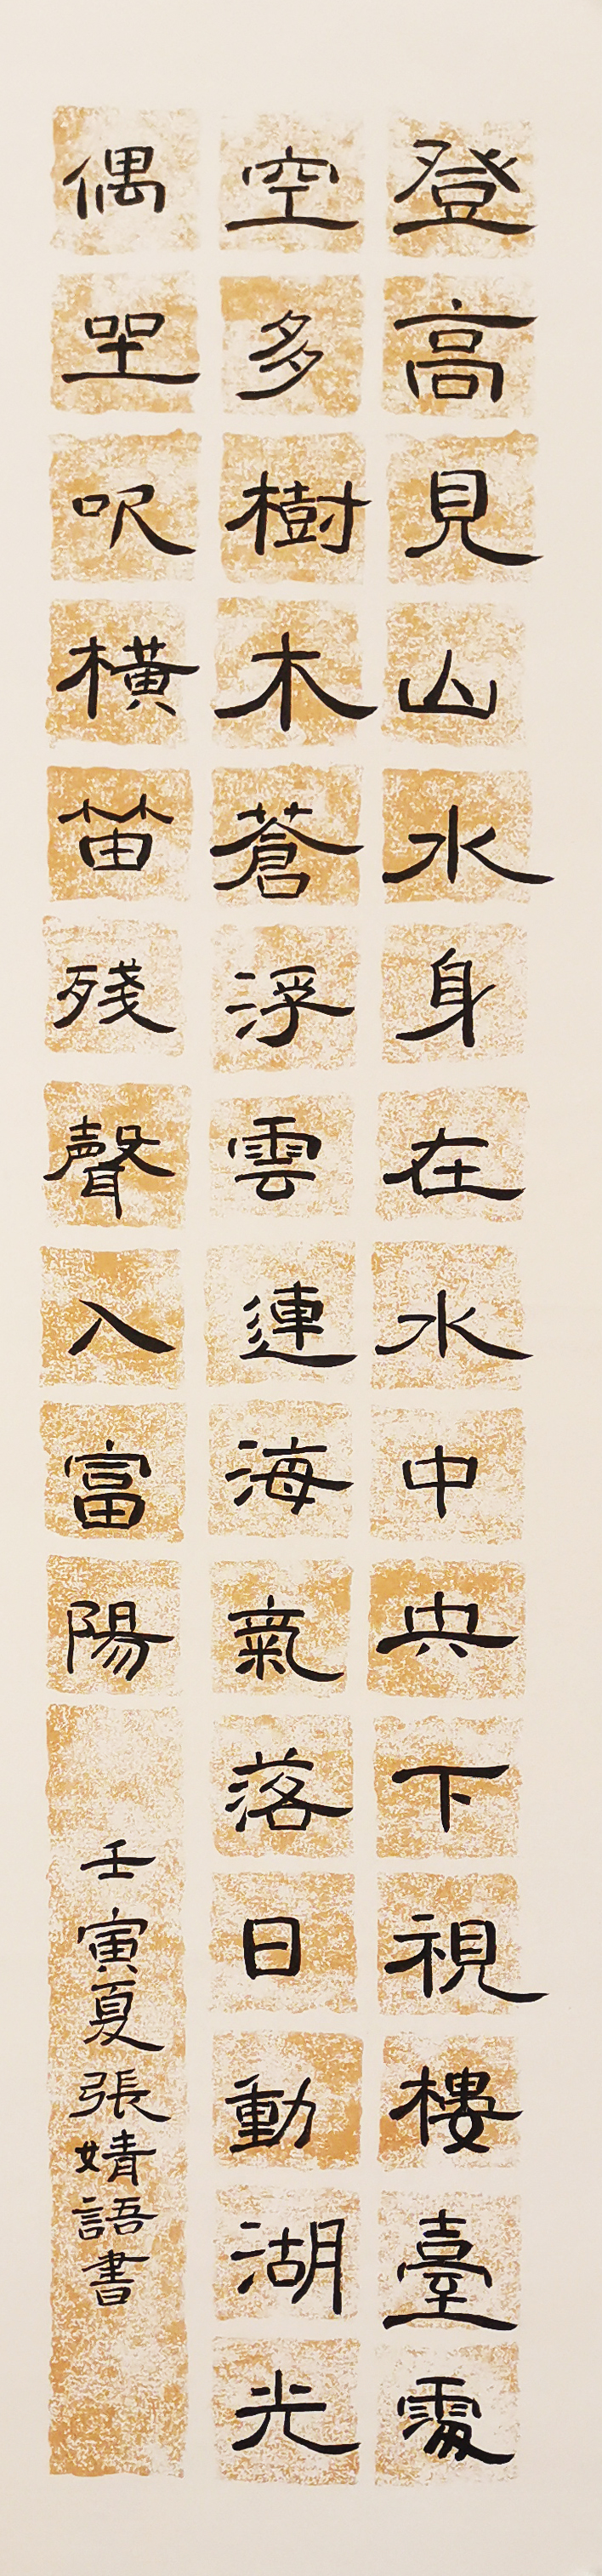 登高見山水身在水中央下視樓臺處
空多樹木蒼浮雲連海氣落日動湖光
偶坐吹橫笛殘聲入富陽
壬寅夏張婧語書